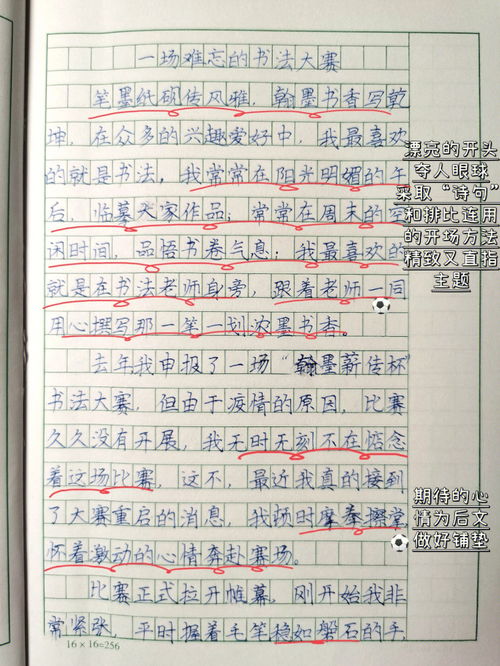 一场难忘的书法大赛
笔墨纸砚传风雅，翰墨书香写乾
坤，在众多的兴趣爱好中，我最喜欢
的就是书法。我常常在阳光明媚的午
后，临摹大家作品；常常在周末的空
闲时间，品悟书卷气息；我最喜欢的
就是在书法老师身旁，跟着老师一同
用心撰写那一笔一划浓墨书香。
去年我申报了一场“翰墨薪传杯”
书法大赛，但由于疫情的原因，比赛
久久没有开展，我无时无刻不在惦念
着这场比赛，这不，最近我真的接到
了大赛重启的消息，我顿时摩拳擦掌
怀着激动的心情奔赴赛场。
比赛正式拉开帷幕，刚开始我非
常紧张，平时握着毛笔稳如磐石的手，
16×16=256
漂亮的开头
夺人眼球
采取“诗句”
和排比连用
的开场方法
精致又直指
主题
期待的心
情为后文
做好铺垫